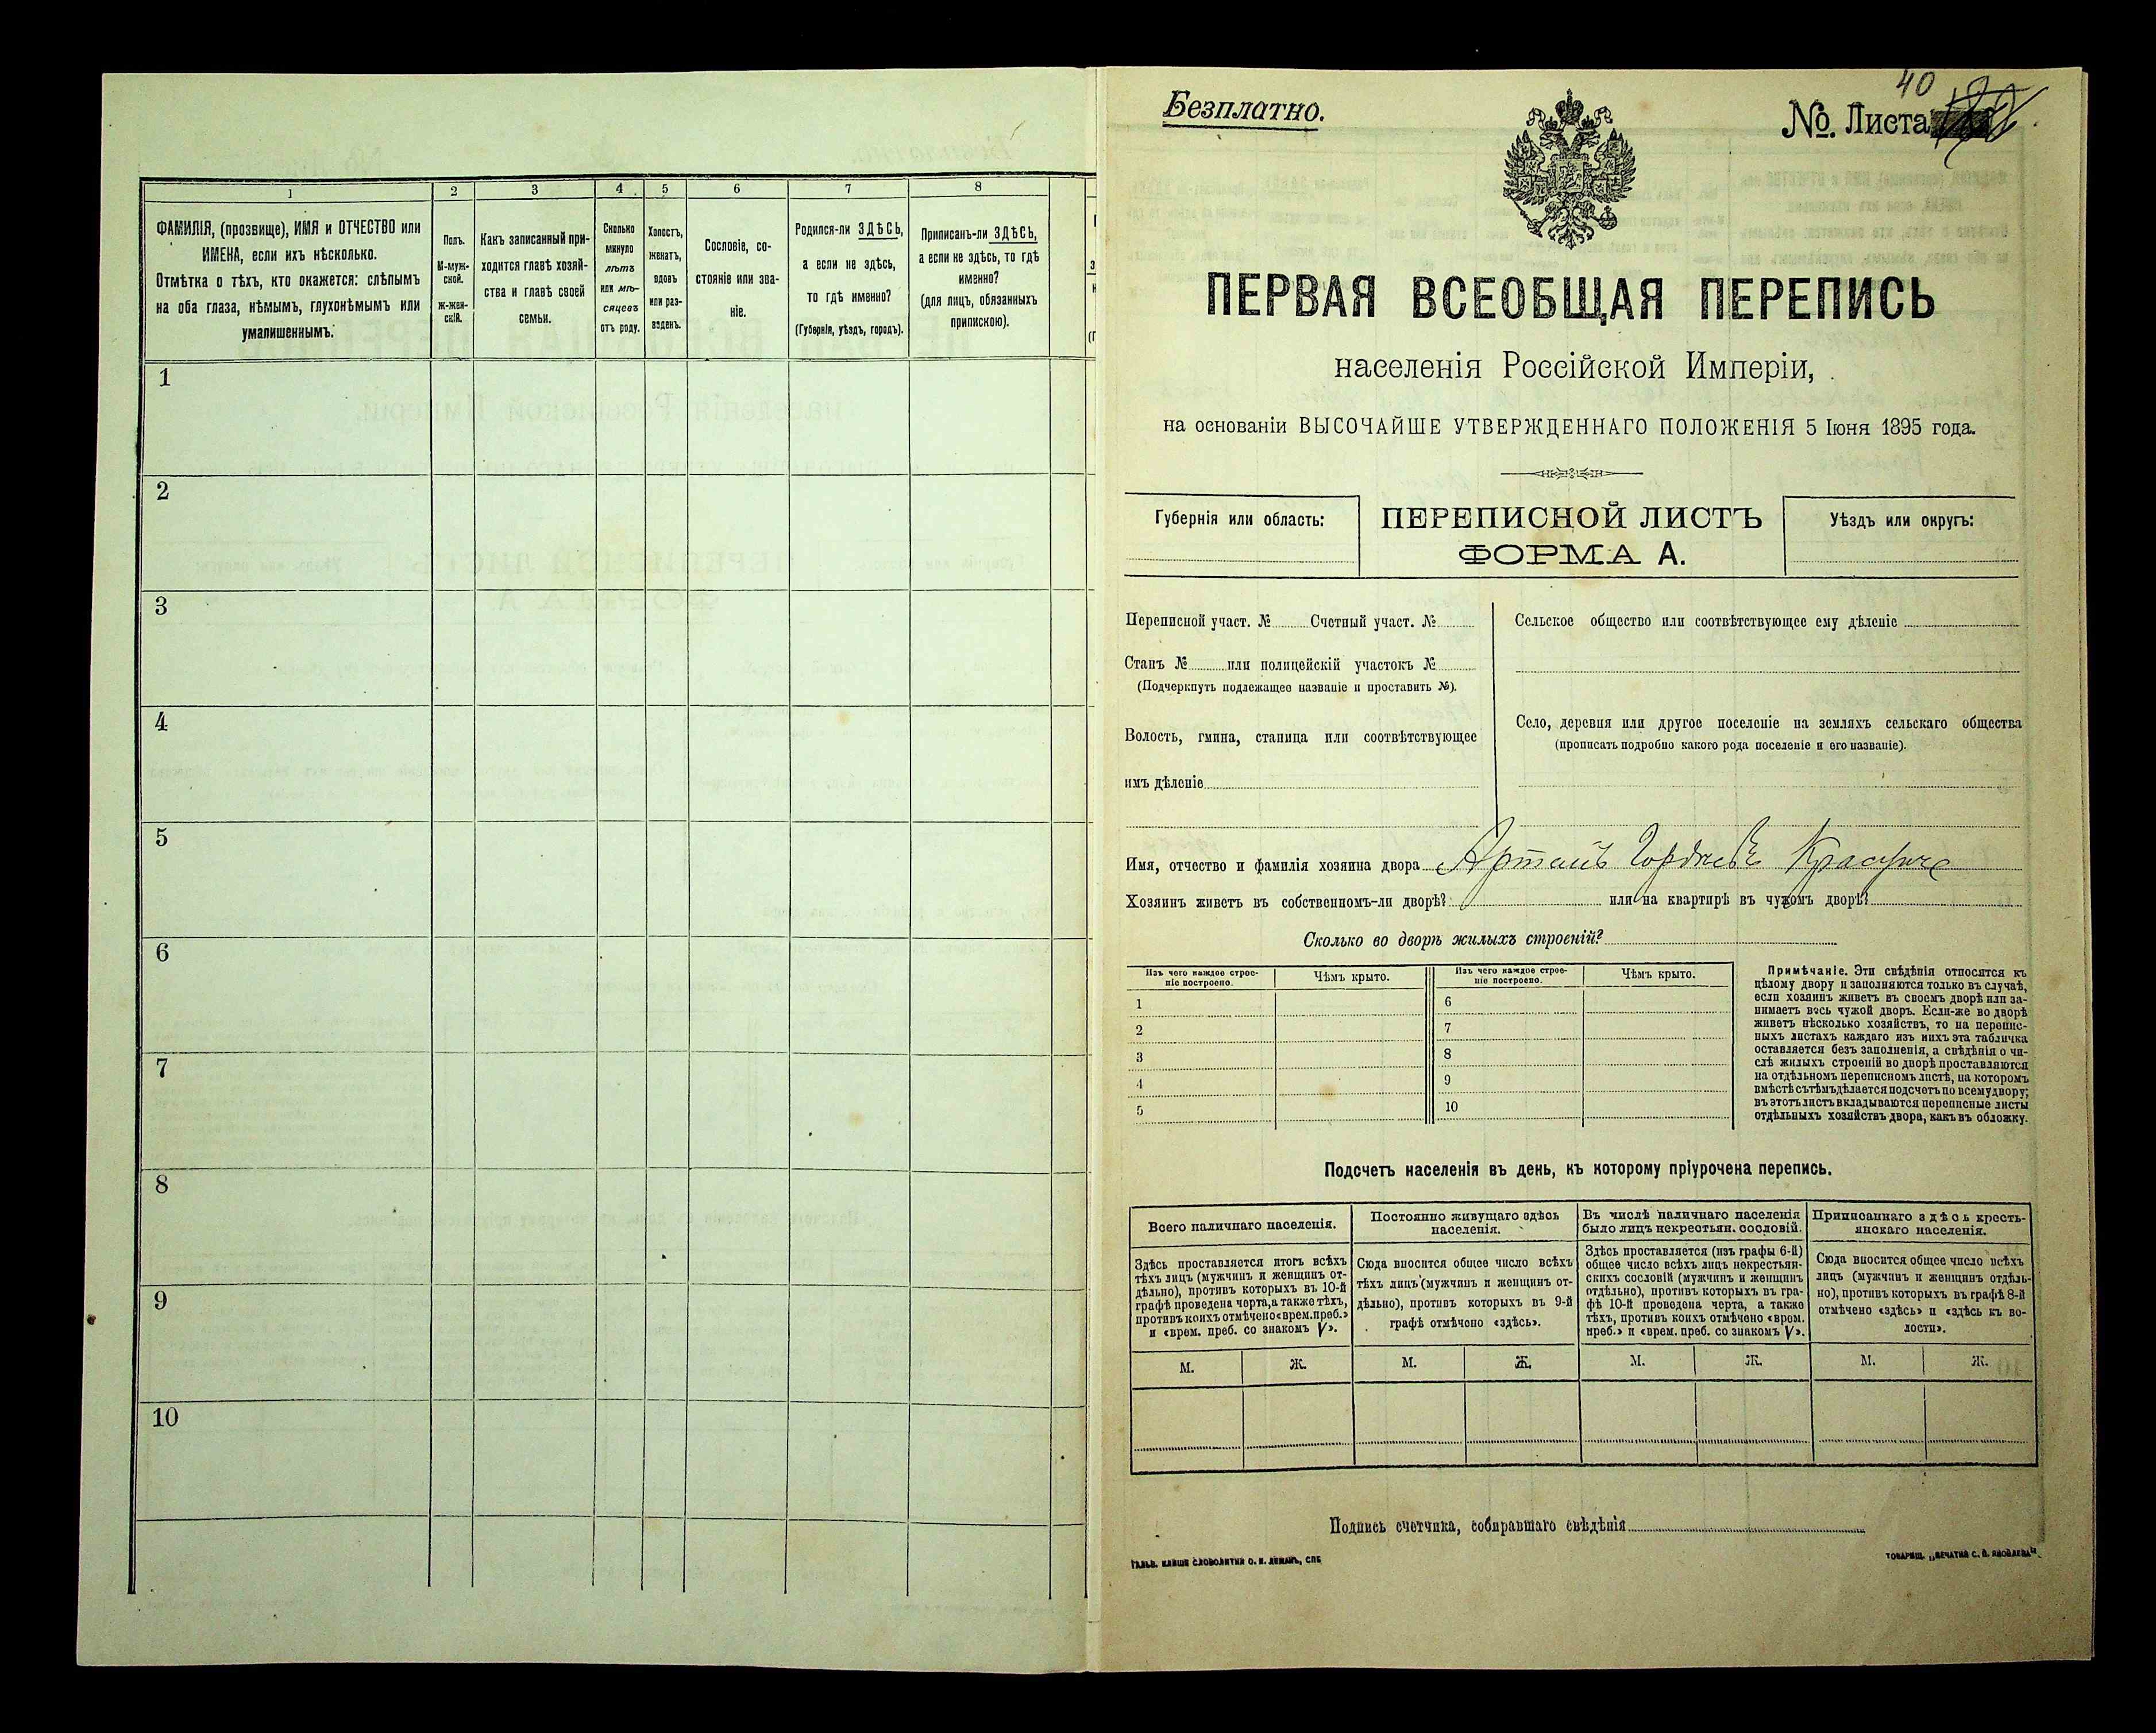 1
2
3
4
5
6
7
8
ФАМИЛІЯ, (прозвище), ИМЯ и ОТЧЕСТВО или
ИМЕНА, если ихъ нѣсколько.
Отмѣтка о тѣхъ, кто окажется: слѣпымъ
на оба глаза, нѣмымъ, глухонѣмымъ или
умалишеннымъ.
Полъ.
М-муж-
ской.
ж-жен-
скій.
Какъ записанный при-
ходится главѣ хозяй-
ства и главѣ своей
семьи.
Сколько
минуло
лѣтъ
или мѣ-
сяцевъ
отъ роду.
Холостъ,
женатъ,
вдовъ
или раз-
веденъ.
Сословіе, со-
стояніе или зва-
ніе.
Родился-ли ЗДѢСЬ,
а если не здѣсь,
то гдѣ именно?
(Губернія, уѣздъ, городъ).
Приписанъ-ли ЗДѢСЬ,
а если не здѣсь, то гдѣ
именно?
(для лицъ, обязанныхъ
припискою).
1
2
3
4
5
6
7
8
9
10
Безплатно.
40
№. Листа
ПЕРВАЯ ВСЕОБЩАЯ ПЕРЕПИСЬ
населенія Россійской Имперіи,
на основаніи ВЫСОЧАЙШЕ УТВЕРЖДЕННАГО ПОЛОЖЕНІЯ 5 Іюня 1895 года.
Губернія или область:
ПЕРЕПИСНОЙ ЛИСТЪ
ФОРМА А.
Уѣздъ или округъ:
Переписной участ. № Счетный участ. №
Станъ № или полицейскій участокъ №
(Подчеркнуть подлежащее названіе и проставить №).
Волость, гмина, станица или соотвѣтствующее
имъ дѣленіе
Сельское общество или соотвѣтствующее ему дѣленіе
Село, деревня или другое поселеніе на земляхъ сельскаго общества
(прописать подробно какого рода поселеніе и его названіе).
Имя, отчество и фамилія хозяина двора
Хозяинъ живетъ въ собственномъ-ли дворѣ? или на квартирѣ въ чужомъ дворѣ?
Сколько во дворѣ жилыхъ строеній?
Изъ чего каждое строе-
ніе построено.
Чѣмъ крыто.
Изъ чего каждое строе-
ніе построено.
Чѣмъ крыто.
1
2
3
4
5
6
7
8
9
10
Примѣчаніе. Эти свѣдѣнія относятся къ
цѣлому двору и заполняются только въ случаѣ,
если хозяинъ живетъ въ своемъ дворѣ или за-
нимаетъ весь чужой дворъ. Если-же во дворѣ
живетъ нѣсколько хозяйствъ, то на перепис-
ныхъ листахъ каждаго изъ нихъ эта табличка
оставляется безъ заполненія, а свѣдѣнія о чи-
слѣ жилыхъ строеній во дворѣ проставляются
на отдѣльномъ переписномъ листѣ, на которомъ
вмѣстѣ съ тѣмъ дѣлается подсчетъ по всему двору;
въ этотъ листъ вкладываются переписные листы
отдѣльныхъ хозяйствъ двора, какъ въ обложку.
Подсчетъ населенія въ день, къ которому пріурочена перепись.
Всего наличнаго населенія.
Постоянно живущаго здѣсь
населенія.
Въ числѣ наличнаго населенія
было лицъ некрестьян. сословій.
Приписаннаго здѣсь кресть-
янскаго населенія.
Здѣсь проставляется итогъ всѣхъ
тѣхъ лицъ (мужчинъ и женщинъ от-
дѣльно), противъ которыхъ въ 10-й
графѣ проведена черта, а также тѣхъ,
противъ коихъ отмѣчено «врем. преб.»
и «врем. преб. со знакомъ V».
Сюда вносится общее число всѣхъ
тѣхъ лицъ (мужчинъ и женщинъ от-
дѣльно), противъ которыхъ въ 9-й
графѣ отмѣчено «здѣсь».
Здѣсь проставляется (изъ графы 6-й)
общее число всѣхъ лицъ некрестьян-
скихъ сословій (мужчинъ и женщинъ
отдѣльно), противъ которыхъ въ гра-
фѣ 10-й проведена черта, а также
тѣхъ, противъ коихъ отмѣчено «врем.
преб.» и «врем. преб. со знакомъ V».
Сюда вносится общее число всѣхъ
лицъ (мужчинъ и женщинъ отдѣль-
но), противъ которыхъ въ графѣ 8-й
отмѣчено «здѣсь» и «здѣсь къ во-
лости».
М. Ж. М. Ж. М. Ж. М. Ж.
Подпись счетчика, собиравшаго свѣдѣнія
ГАЛЬВ. КЛИШЕ СЛОВОЛИТНИ О. И. ЛЕМАНЪ, СПБ
ТОВАРИЩ. „ПЕЧАТНЯ С. П. ЯКОВЛЕВА".